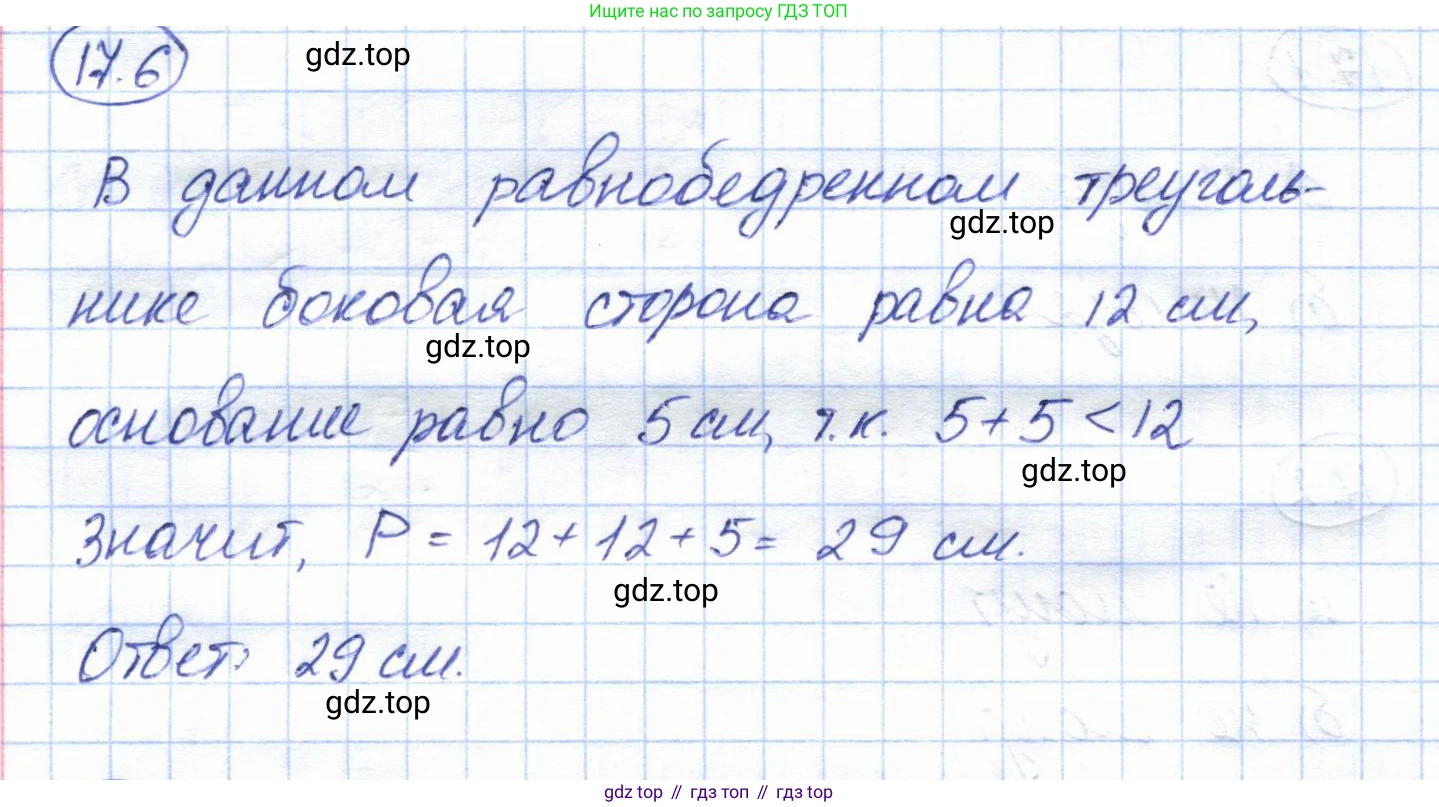 Ищите нас по запросу ГДЗ ТОП
17.6
gdz.top
В данном равнобедренном треуголь-
gdz.top
нике боковая сторона равна 12 см,
gdz.top
основание равно 5 см, т.к. 5+5<12
gdz.top
Значит, P = 12+12+5= 29 см.
gdz.top
Ответ: 29 см.
gdz.top
gdz top // гдз топ // гдз top